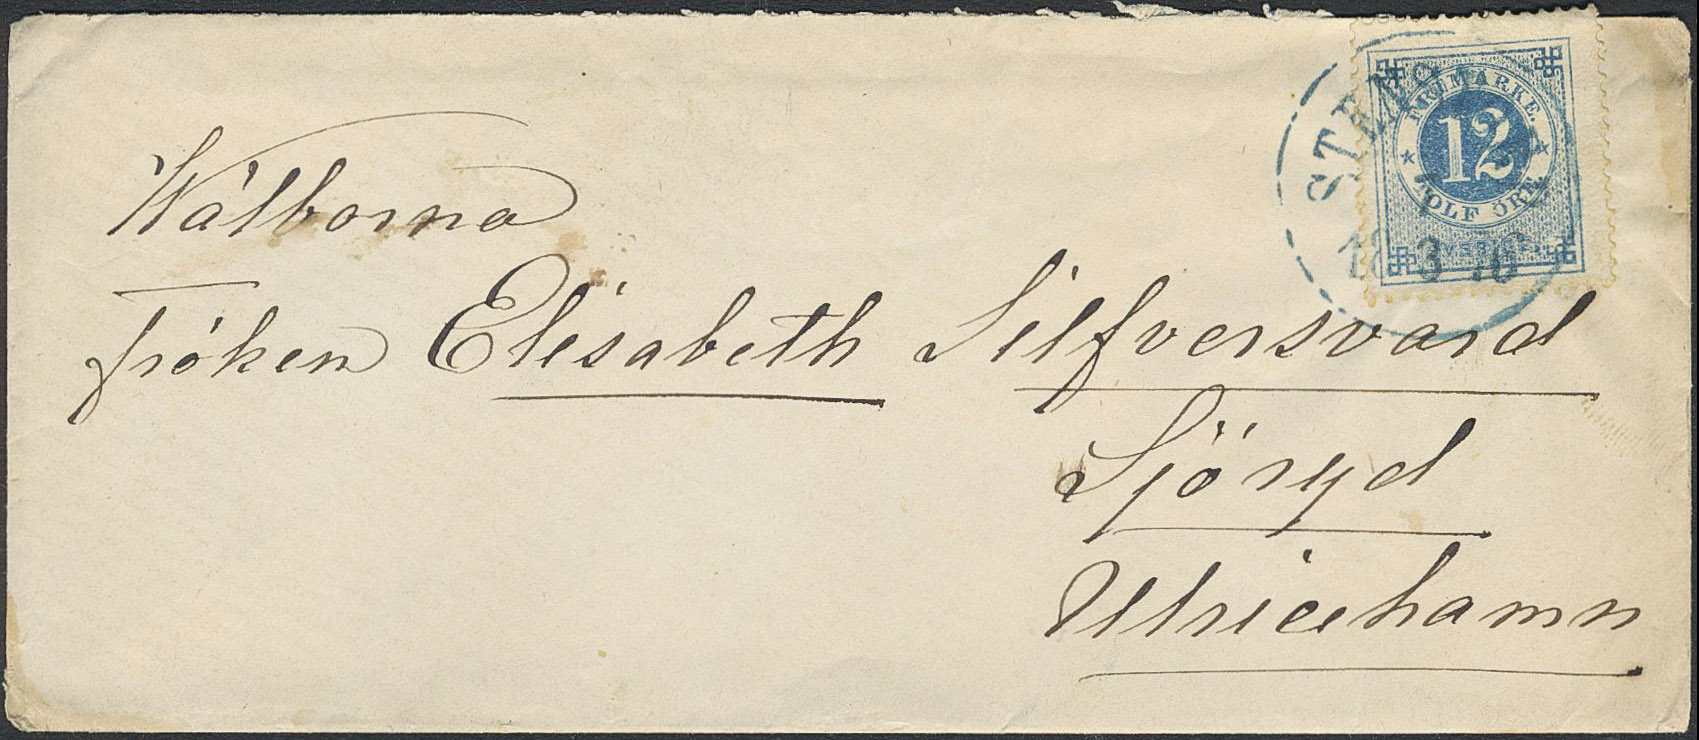 FRIMÄRKE.
12
TOLF ÖRE
SVERIGE
7
3
Wälborna
fröken Elisabeth Silfversvärd
Sjöryd
Ulricehamn